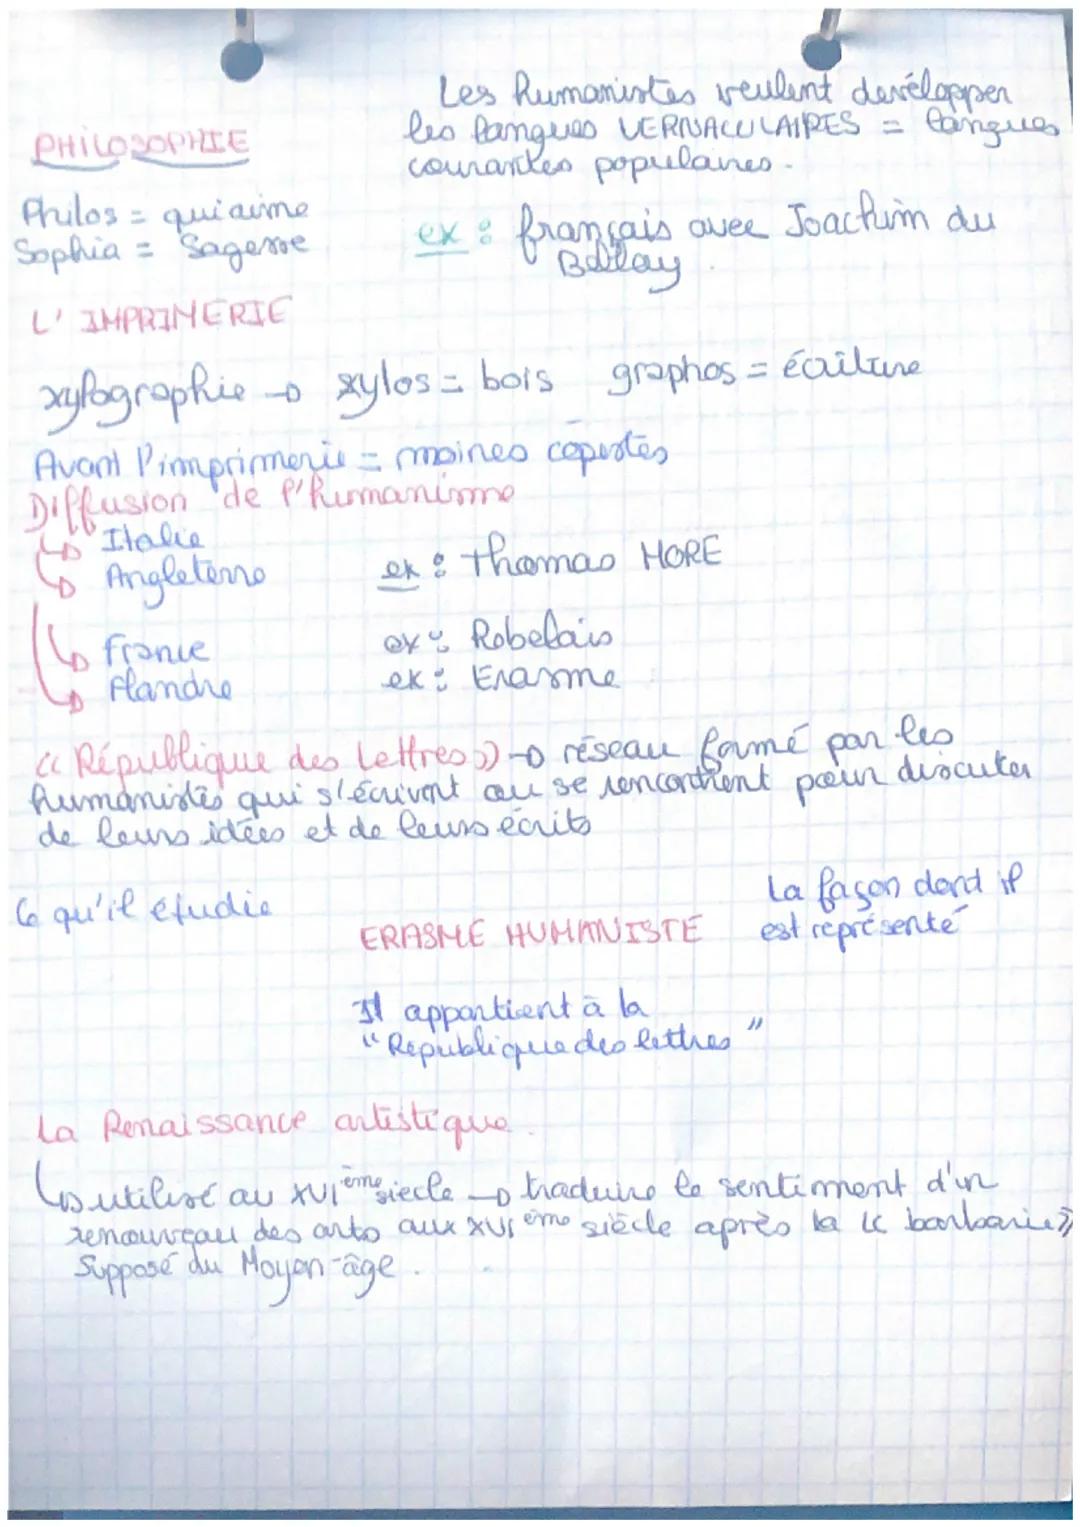 PHILOSOPHIE
Philos = qui aime
Sophia = Sagesse
Les humanistes veulent devélopper
les langues VERNACULAIRES = langues
courantes populaires.
ex : français avec Joachim du
Bellay.
L'IMPRIMERIE
xylographie → xylos = bois graphos = écriture
Avant l'imprimerie = moines copistes
Diffusion de l'humanisme
↳ Italie
↳ Angleterre ex : Thomas MORE
↳ France ex : Rabelais
↳ Flandre ex : Erasme
« République des Lettres » → réseau formé par les
humanistes qui s'écrivent ou se rencontrent pour discuter
de leurs idées et de leurs écrits
Ce qu'il étudie
La façon dont il
est représenté
ERASME HUMANISTE
Il appartient à la
"Republique des lettres"
La Renaissance artistique.
↳ utilisé au XVIème siecle → traduire le sentiment d'un
renouveau des arts aux XVIème siècle après la « barbarie »
Supposé du Moyen-âge.